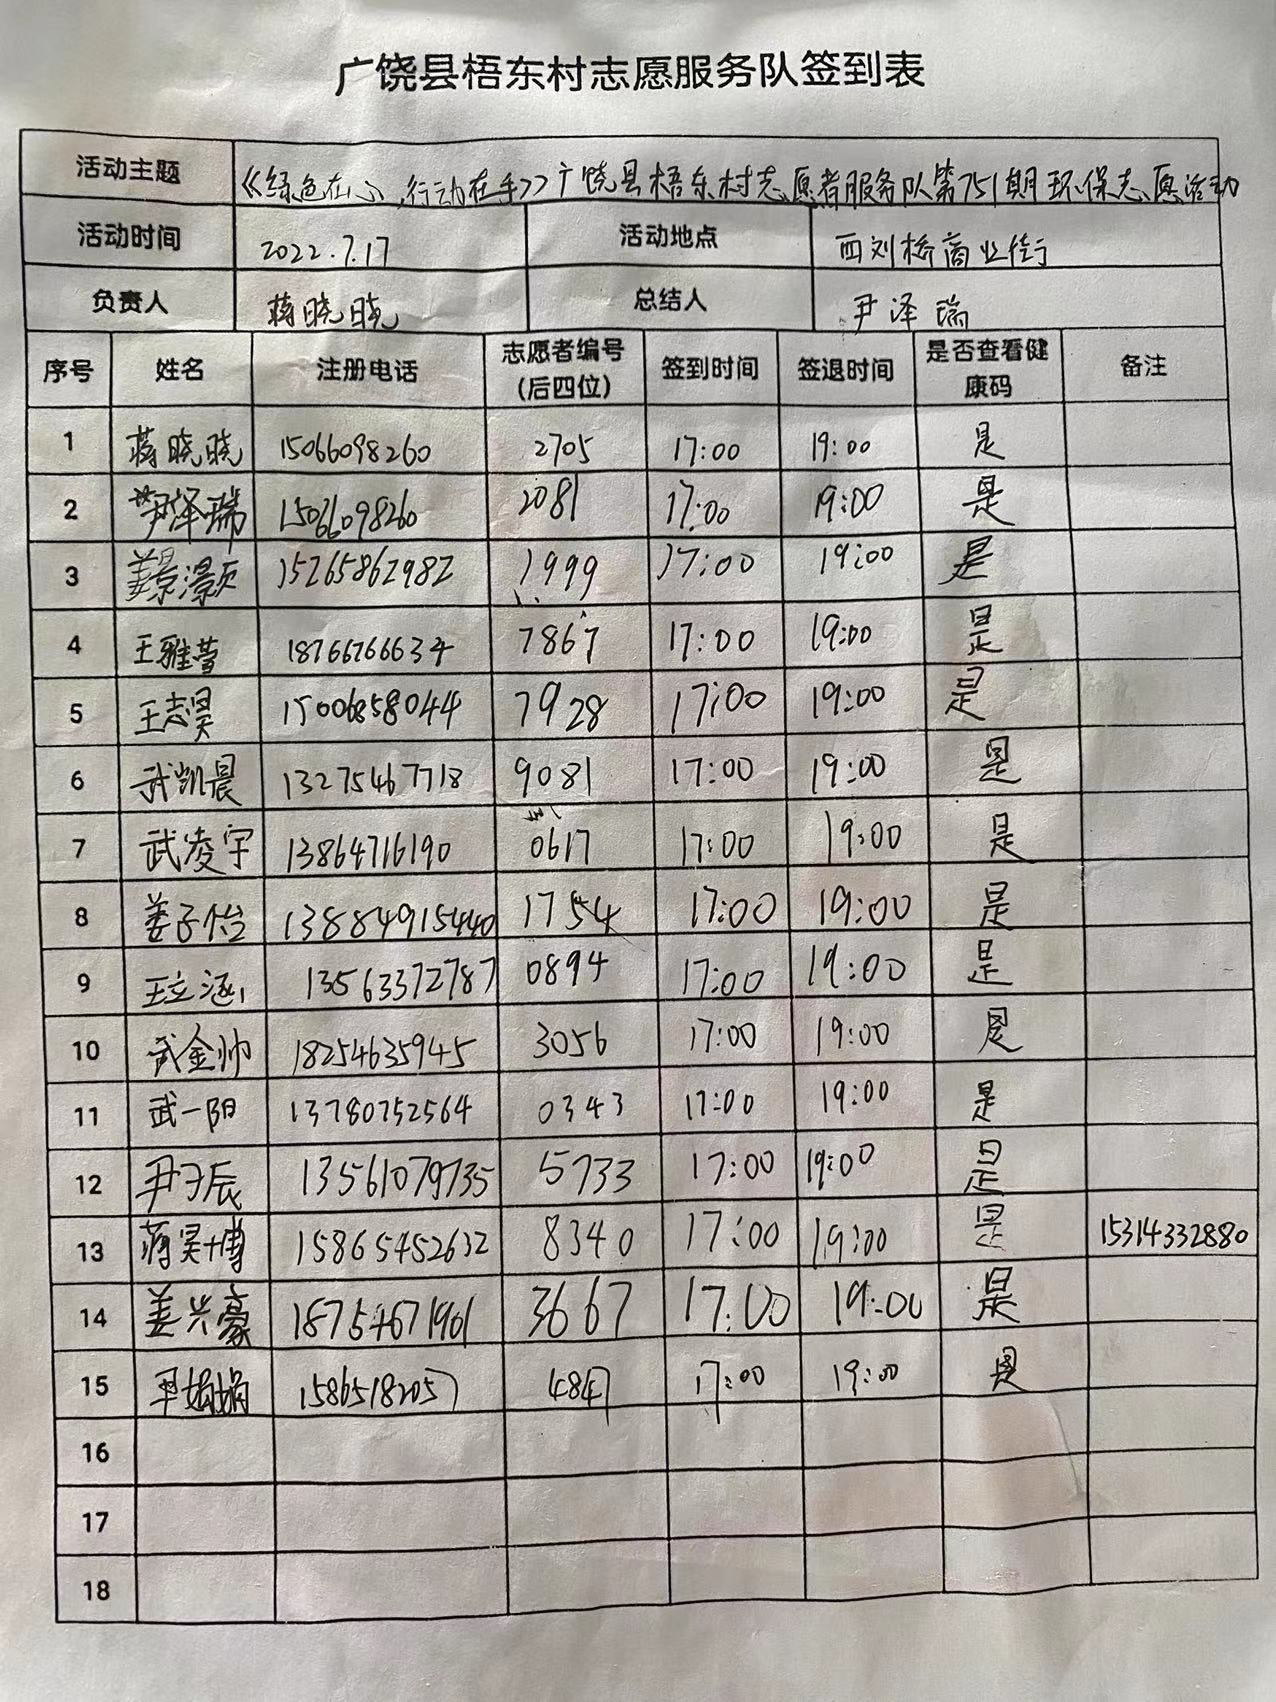 广饶县梧东村志愿服务队签到表
活动主题 《绿色在心,行动在手》广饶县梧东村志愿者服务队第751期环保志愿活动
活动时间 2022.7.17 活动地点 西刘桥商业街
负责人 蒋晓晓 总结人 尹泽瑞
序号 姓名 注册电话 志愿者编号（后四位） 签到时间 签退时间 是否查看健康码 备注
1 蒋晓晓 15066098260 2705 17:00 19:00 是
2 尹泽瑞 15066098260 2081 17:00 19:00 是
3 15265862982 1999 17:00 19:00 是
4 王雅萱 18766766634 7867 17:00 19:00 是
5 王志昊 15006858044 7928 17:00 19:00 是
6 武凯晨 13275467718 9081 17:00 19:00 是
7 武凌宇 13864716190 0617 17:00 19:00 是
8 姜子怡 13884915440 1754 17:00 19:00 是
9 王立涵 13563372787 0894 17:00 19:00 是
10 武金帅 18254635945 3056 17:00 19:00 是
11 武一阳 13780752564 0343 17:00 19:00 是
12 尹子辰 13561079735 5733 17:00 19:00 是
13 蒋昊博 15865452632 8340 17:00 19:00 是 15314332880
14 姜兴豪 18754671961 3667 17:00 19:00 是
15 15865182057 4847 17:00 19:00 是
16
17
18